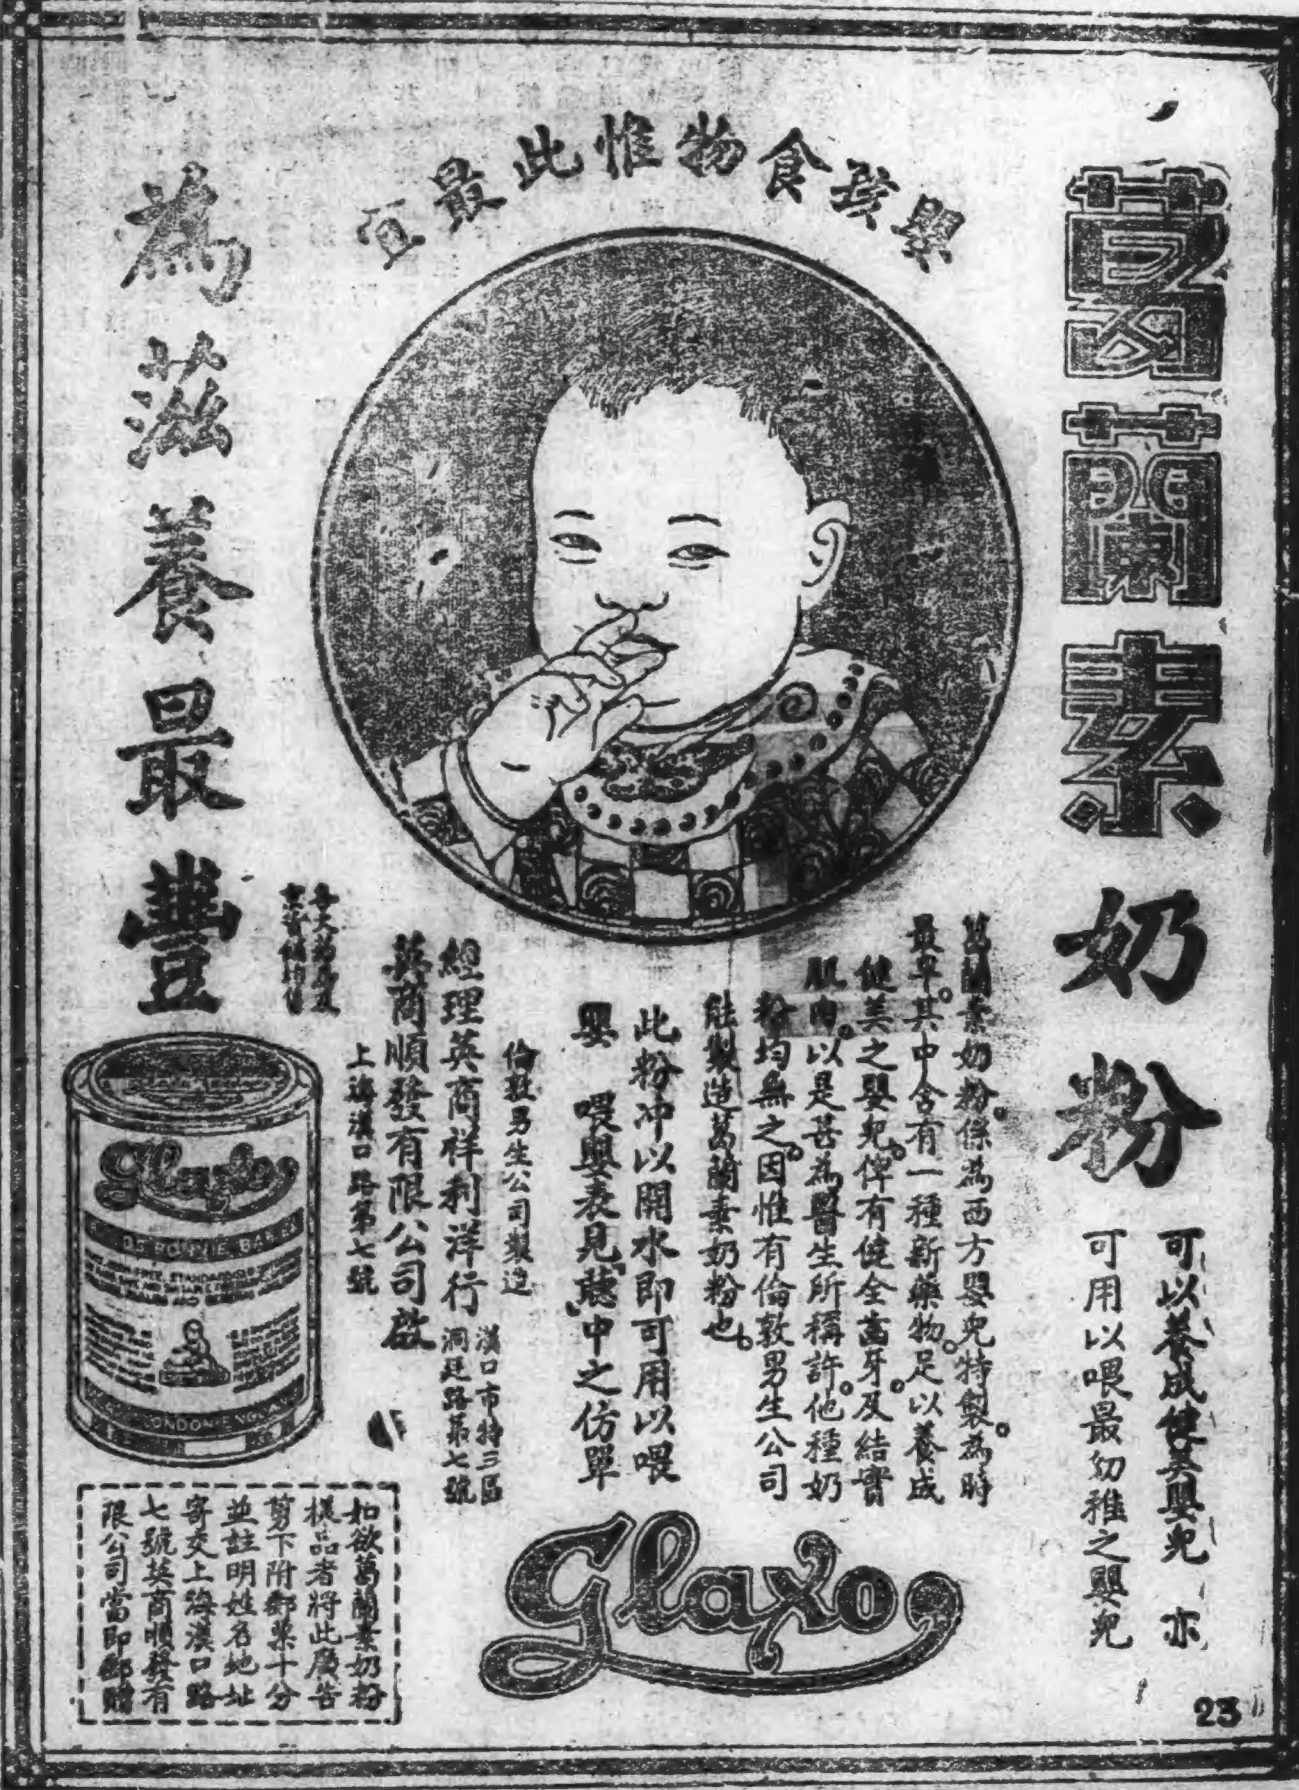 葛蘭素奶粉
可以養成健美嬰兒 亦
可用以喂最幼稚之嬰兒
嬰孩食物惟此最宜
為滋養最豐
葛蘭素奶粉。係為西方嬰兒特製。為時
最早。其中含有一種新藥物。足以養成
健美之嬰兒。俾有健全齒牙。及結實
肌肉。以是甚為醫生所稱許。他種奶
粉均無之。因惟有倫敦男生公司
能製造葛蘭素奶粉也。
此粉冲以開水即可用以喂
嬰 喂嬰表見聽中之仿單
倫敦男生公司製造
經理英商祥利洋行
漢口市特三區
洞廷路第七號
英商順發有限公司啟
上海漢口路第七號
Glaxo
LONDON·ENGLAND
Glaxo
如欲葛蘭素奶粉
樣品者將此廣告
剪下附郵票十分
並註明姓名地址
寄交上海漢口路
七號英商順發有
限公司當即郵贈
23